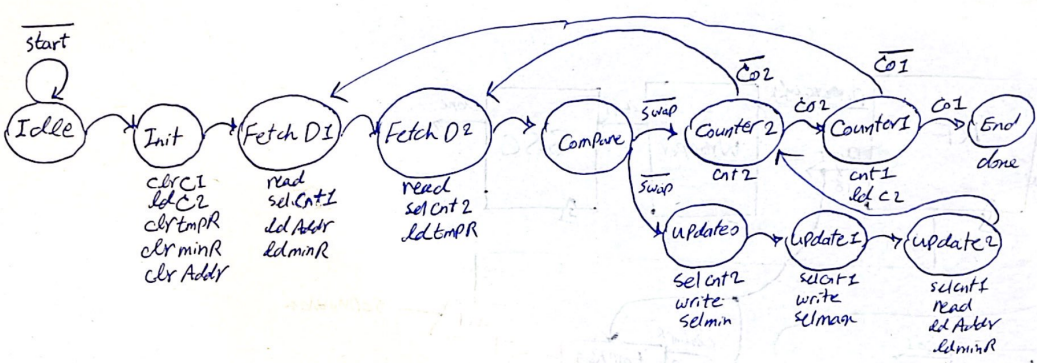 start
Idle
Init
clrC1
ldC2
clrtmpR
clrminR
clrAddr
Fetch D1
read
selCnt1
ldAddr
ldminR
Fetch D2
read
selcnt2
ldtmpR
Compare
swap
swap
Counter2
cnt2
Co2
co2
Counter1
cnt1
ld C2
Co1
Co1
End
done
update0
selcnt2
write
selmin
update1
selcnt1
write
selmax
update2
selcnt1
read
ldAddr
ldminR